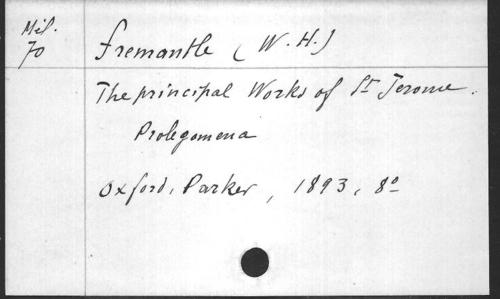 Mil.
70
Fremantle (W.H.)
The principal Works of St Jerome.
Prolegomena
Oxford, Parker, 1893, 8o